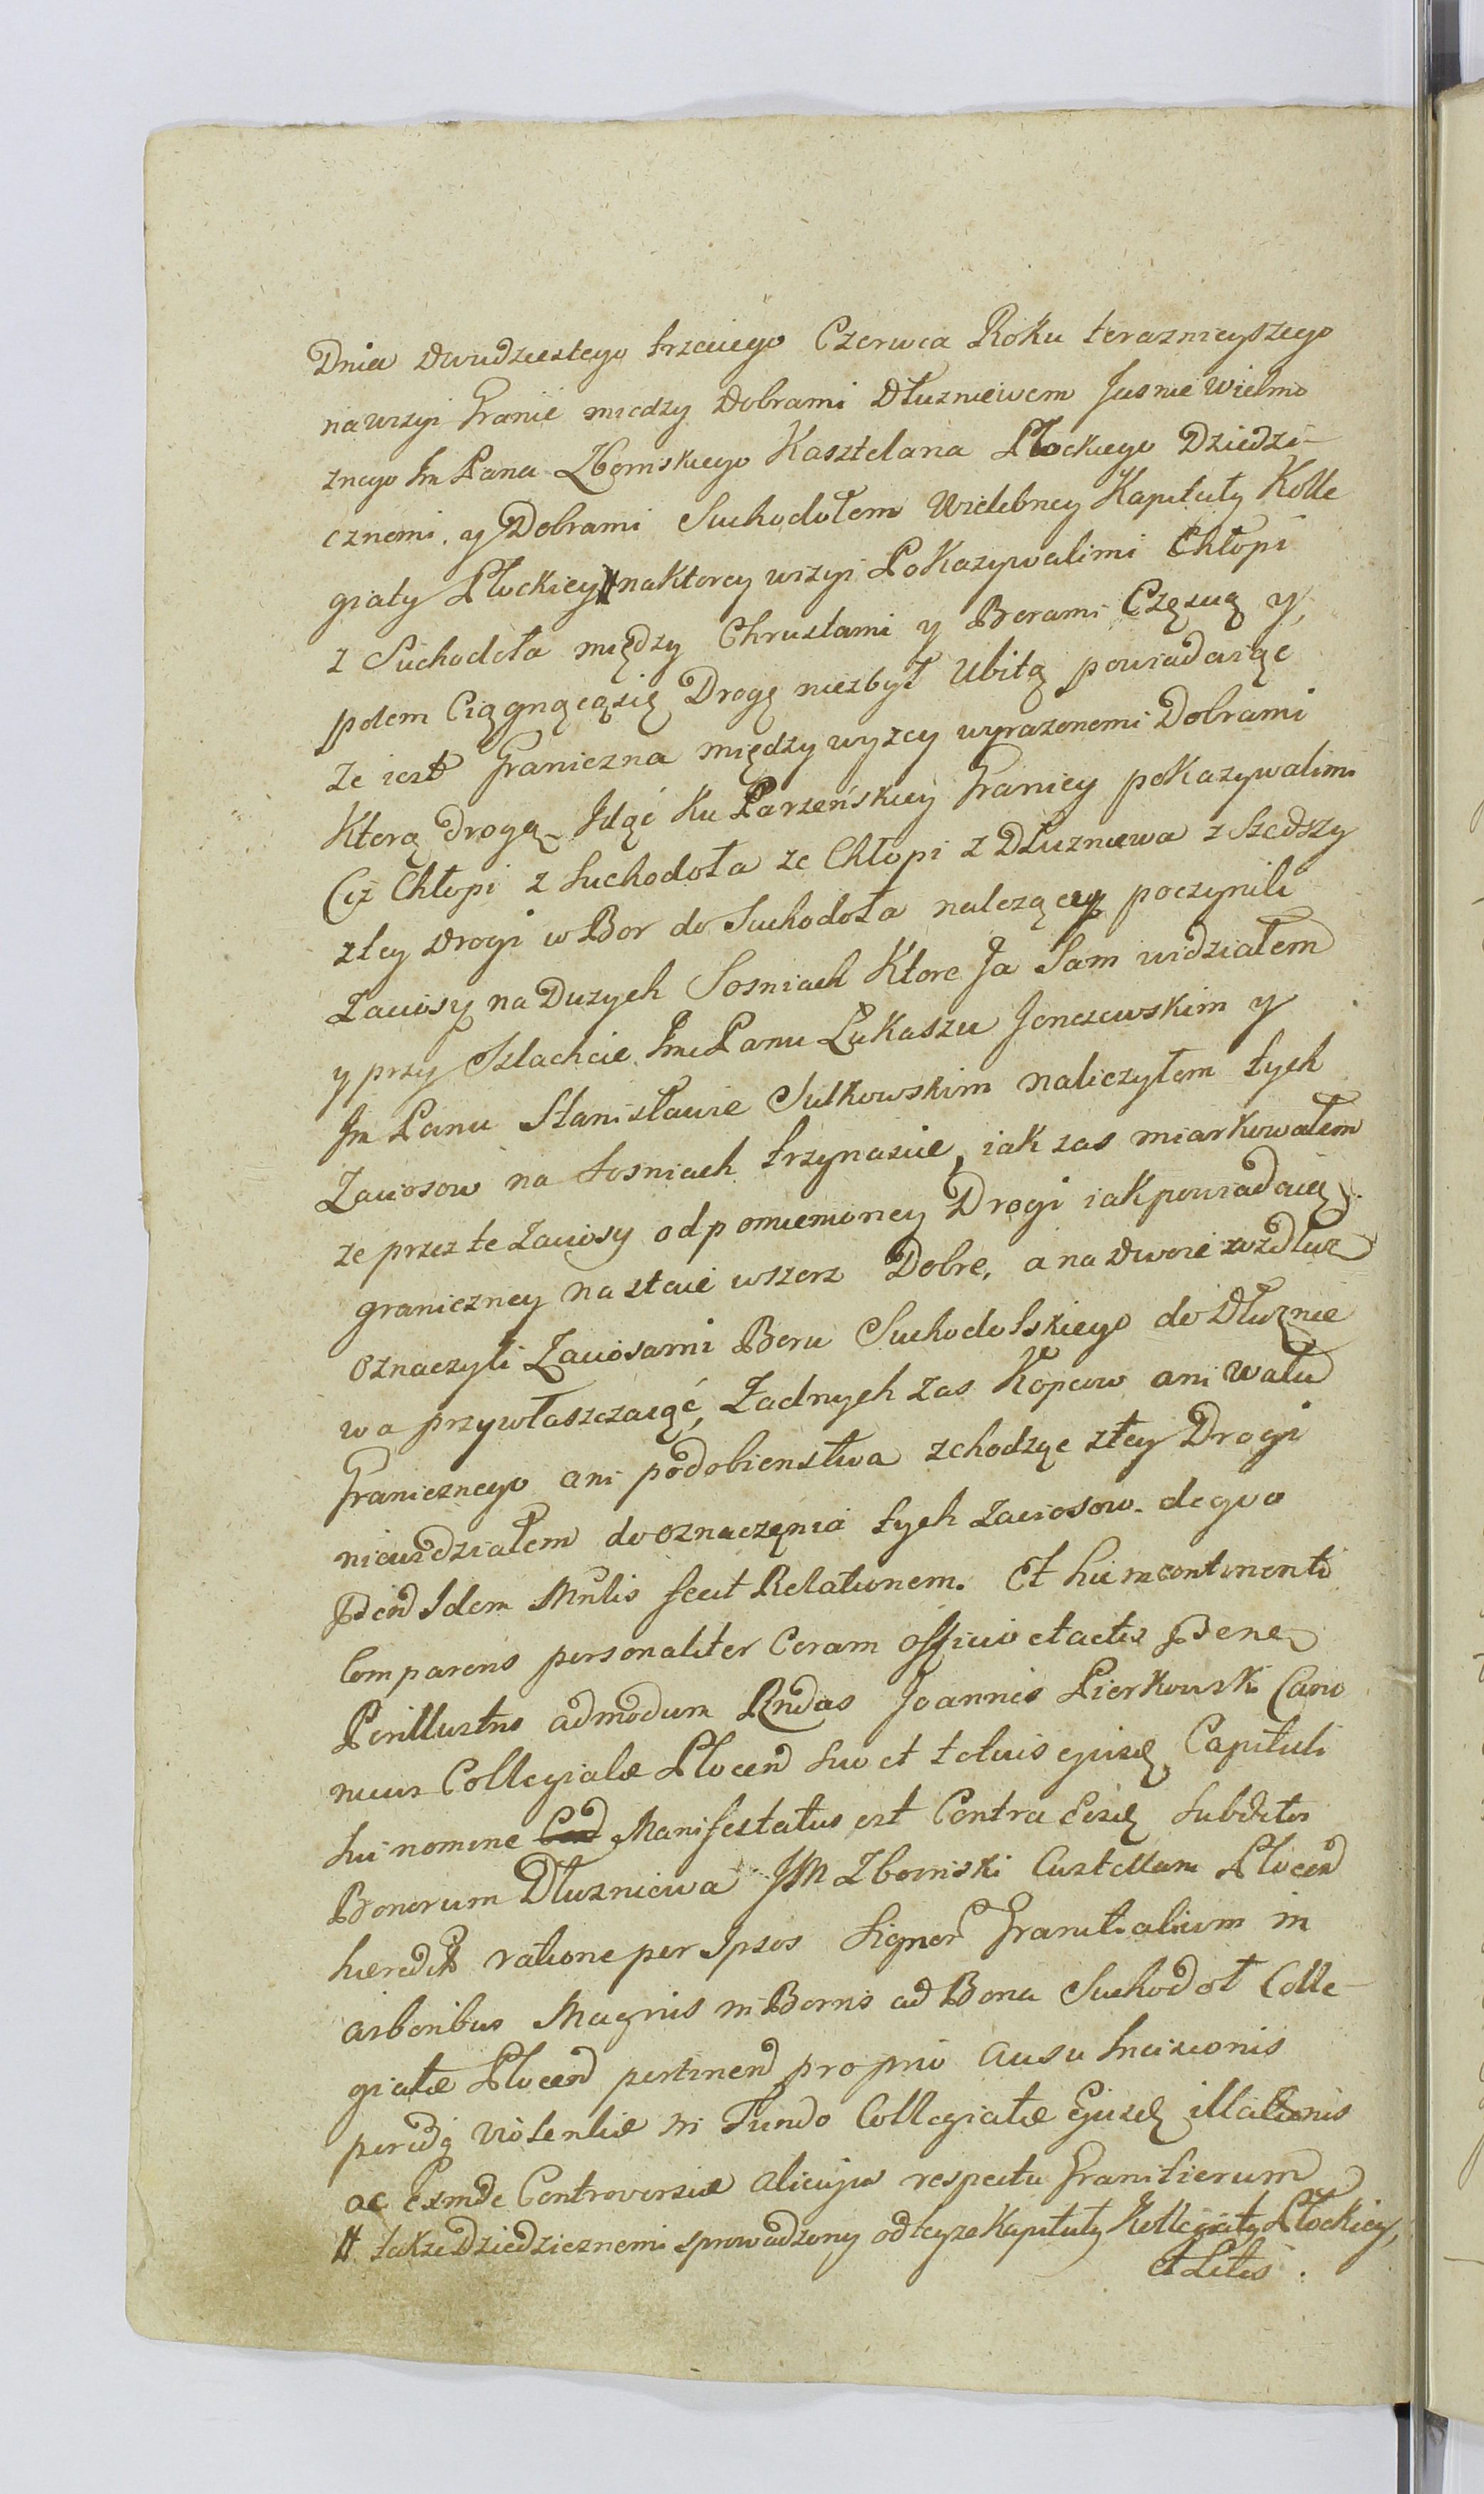 Dnia dwudziestego trzeciego Czerwca Roku terazniejszego
na wizyi Granic miedzy Dobrami Dłuzniewem Jasnie Wielmo
znego Jm Pana Zbomskiego Kasztelana Płockiego Dziedzi-
cznemi, y Dobrami Suchodołem Wielebney Kapituły Kolle
giaty Płockiey # na ktorey wizyi Pokazywalimi Chłopi
z Suchodoła między Chrustami y Borami Częscią y,
polem Ciągnącąsię Drogę niezbyt Ubitą powiadaiąc
ze iest Graniczna między wyzey wyrazonemi Dobrami
Ktorą drogą Idąć ku Parzeńskiey Granicy pokazywalimi
Ciz Chłopi z Suchodoła ze Chłopi z Dłuzniewa z Szedszy
ztey drogi w Bor do Suchodoła nalezący poczynili
Zaciosy na Duzych Sosniach Ktore Ja Sam widziałem
y przy Szlachcie Jmc Panu Łukaszu Jonczewskim y
Jm Panu Stanisławie Sutkowskim naliczyłem tych
Zaciosow na Sosniach trzynascie, iak zas miarkowałem
ze przez te Zaciosy od pomiemoney Drogi iak powiadaią
graniczney na staie wszerz Dobre, a na dwoie wzdłuz
oznaczyli Zaciosami Boru Suchodolskiego do Dłuznie
wa przywłaszczaiąć, Zadnych zas Kopcow ani wału
Granicznego ani podobienstwa zchodząc ztey Drogi
niewidziałem do oznaczęnia tych Zaciosow. de quo
Idem Mnlis fecit Relationem. Et hic incontinenti
Comparens personaliter Coram officio et actis
Perillustris admodum Rndus Joannes Pierkowski Cano
nicus Collegiatæ Plocen suo et totius ejusd Capituli
sui nomine Manifestatus est Contra Eosd Subditos
Bonorum Dłuzniewa JM Zbomski Castellani Plocen
hæredit ratione per Ipsos Signor Granitialium in
arboribus Magnis in Borris ad Bona Suchodoł Colle-
giatæ Plocen pertinen proprio ausu Incisionis
peridq violentiæ in Fundo Collegiatæ Ejusd illationis
ac Exinde Controversiæ alicujus respectu Granitierum
# takze Dziedzicznemi sprowadzony od teyze Kapituły Kollegiaty Płockiey,
et Litis.